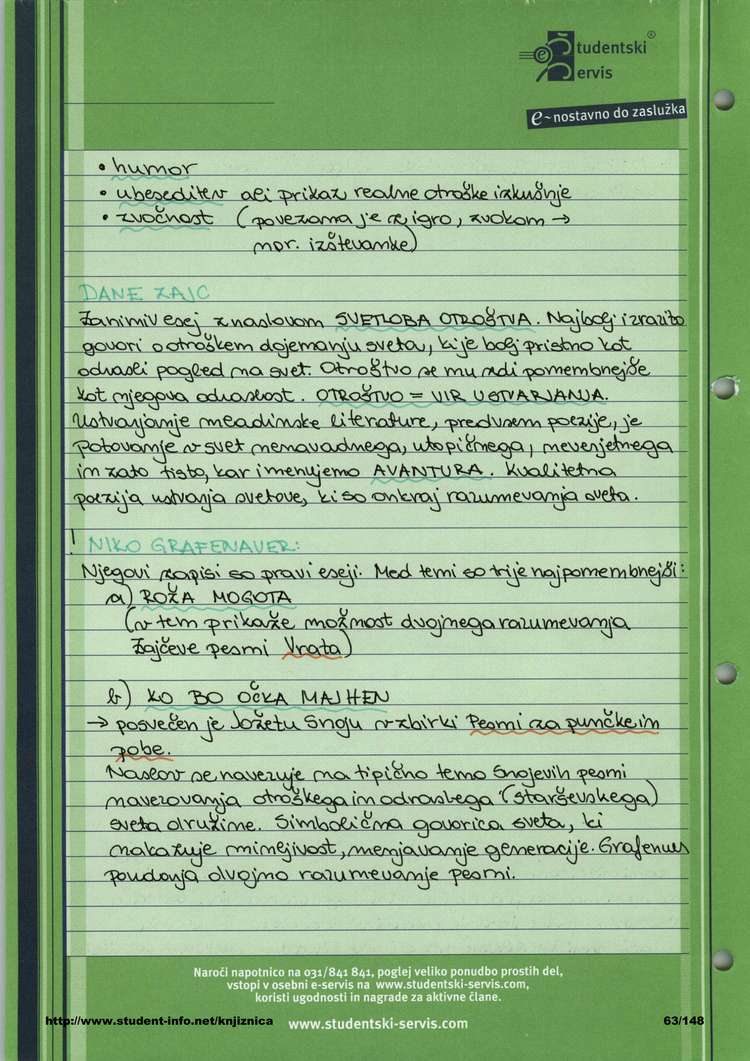 Študentski®
Servis
e~nostavno do zaslužka
• humor
• ubeseditev ali prikaz realne otroške izkušnje
• zvočnost (povezana je z igro, zvokom →
npr. izštevanke)
DANE ZAJC
Zanimiv esej z naslovom SVETLOBA OTROŠTVA. Najbolj izrazito
govori o otroškem dojemanju sveta, ki je bolj pristno kot
odrasli pogled na svet. Otroštvo se mu zdi pomembnejše
kot njegova odraslost. OTROŠTVO = VIR USTVARJANJA.
Ustvarjanje mladinske literature, predvsem poezije, je
potovanje v svet nenavadnega, utopičnega, neverjetnega
in zato tisto, kar imenujemo AVANTURA. Kvalitetna
poezija ustvarja svetove, ki so onkraj razumevanja sveta.
! NIKO GRAFENAUER:
Njegovi zapisi so pravi eseji. Med temi so trije najpomembnejši:
a) ROŽA MOGOTA
(v tem prikaže možnost dvojnega razumevanja
Zajčeve pesmi Vrata)
b) KO BO OČKA MAJHEN
→ posvečen je Jožetu Snoju v zbirki Pesmi za punčke in
pobe.
Naslov se navezuje na tipično temo Snojevih pesmi
navezovanja otroškega in odraslega (starševskega)
sveta družine. Simbolična govorica sveta, ki
nakazuje minljivost, menjavanje generacije. Grafenuer
poudarja dvojno razumevanje pesmi.
Naroči napotnico na 031/841 841, poglej veliko ponudbo prostih del,
vstopi v osebni e-servis na www.studentski-servis.com,
koristi ugodnosti in nagrade za aktivne člane.
http://www.student-info.net/knjiznica www.studentski-servis.com 63/148